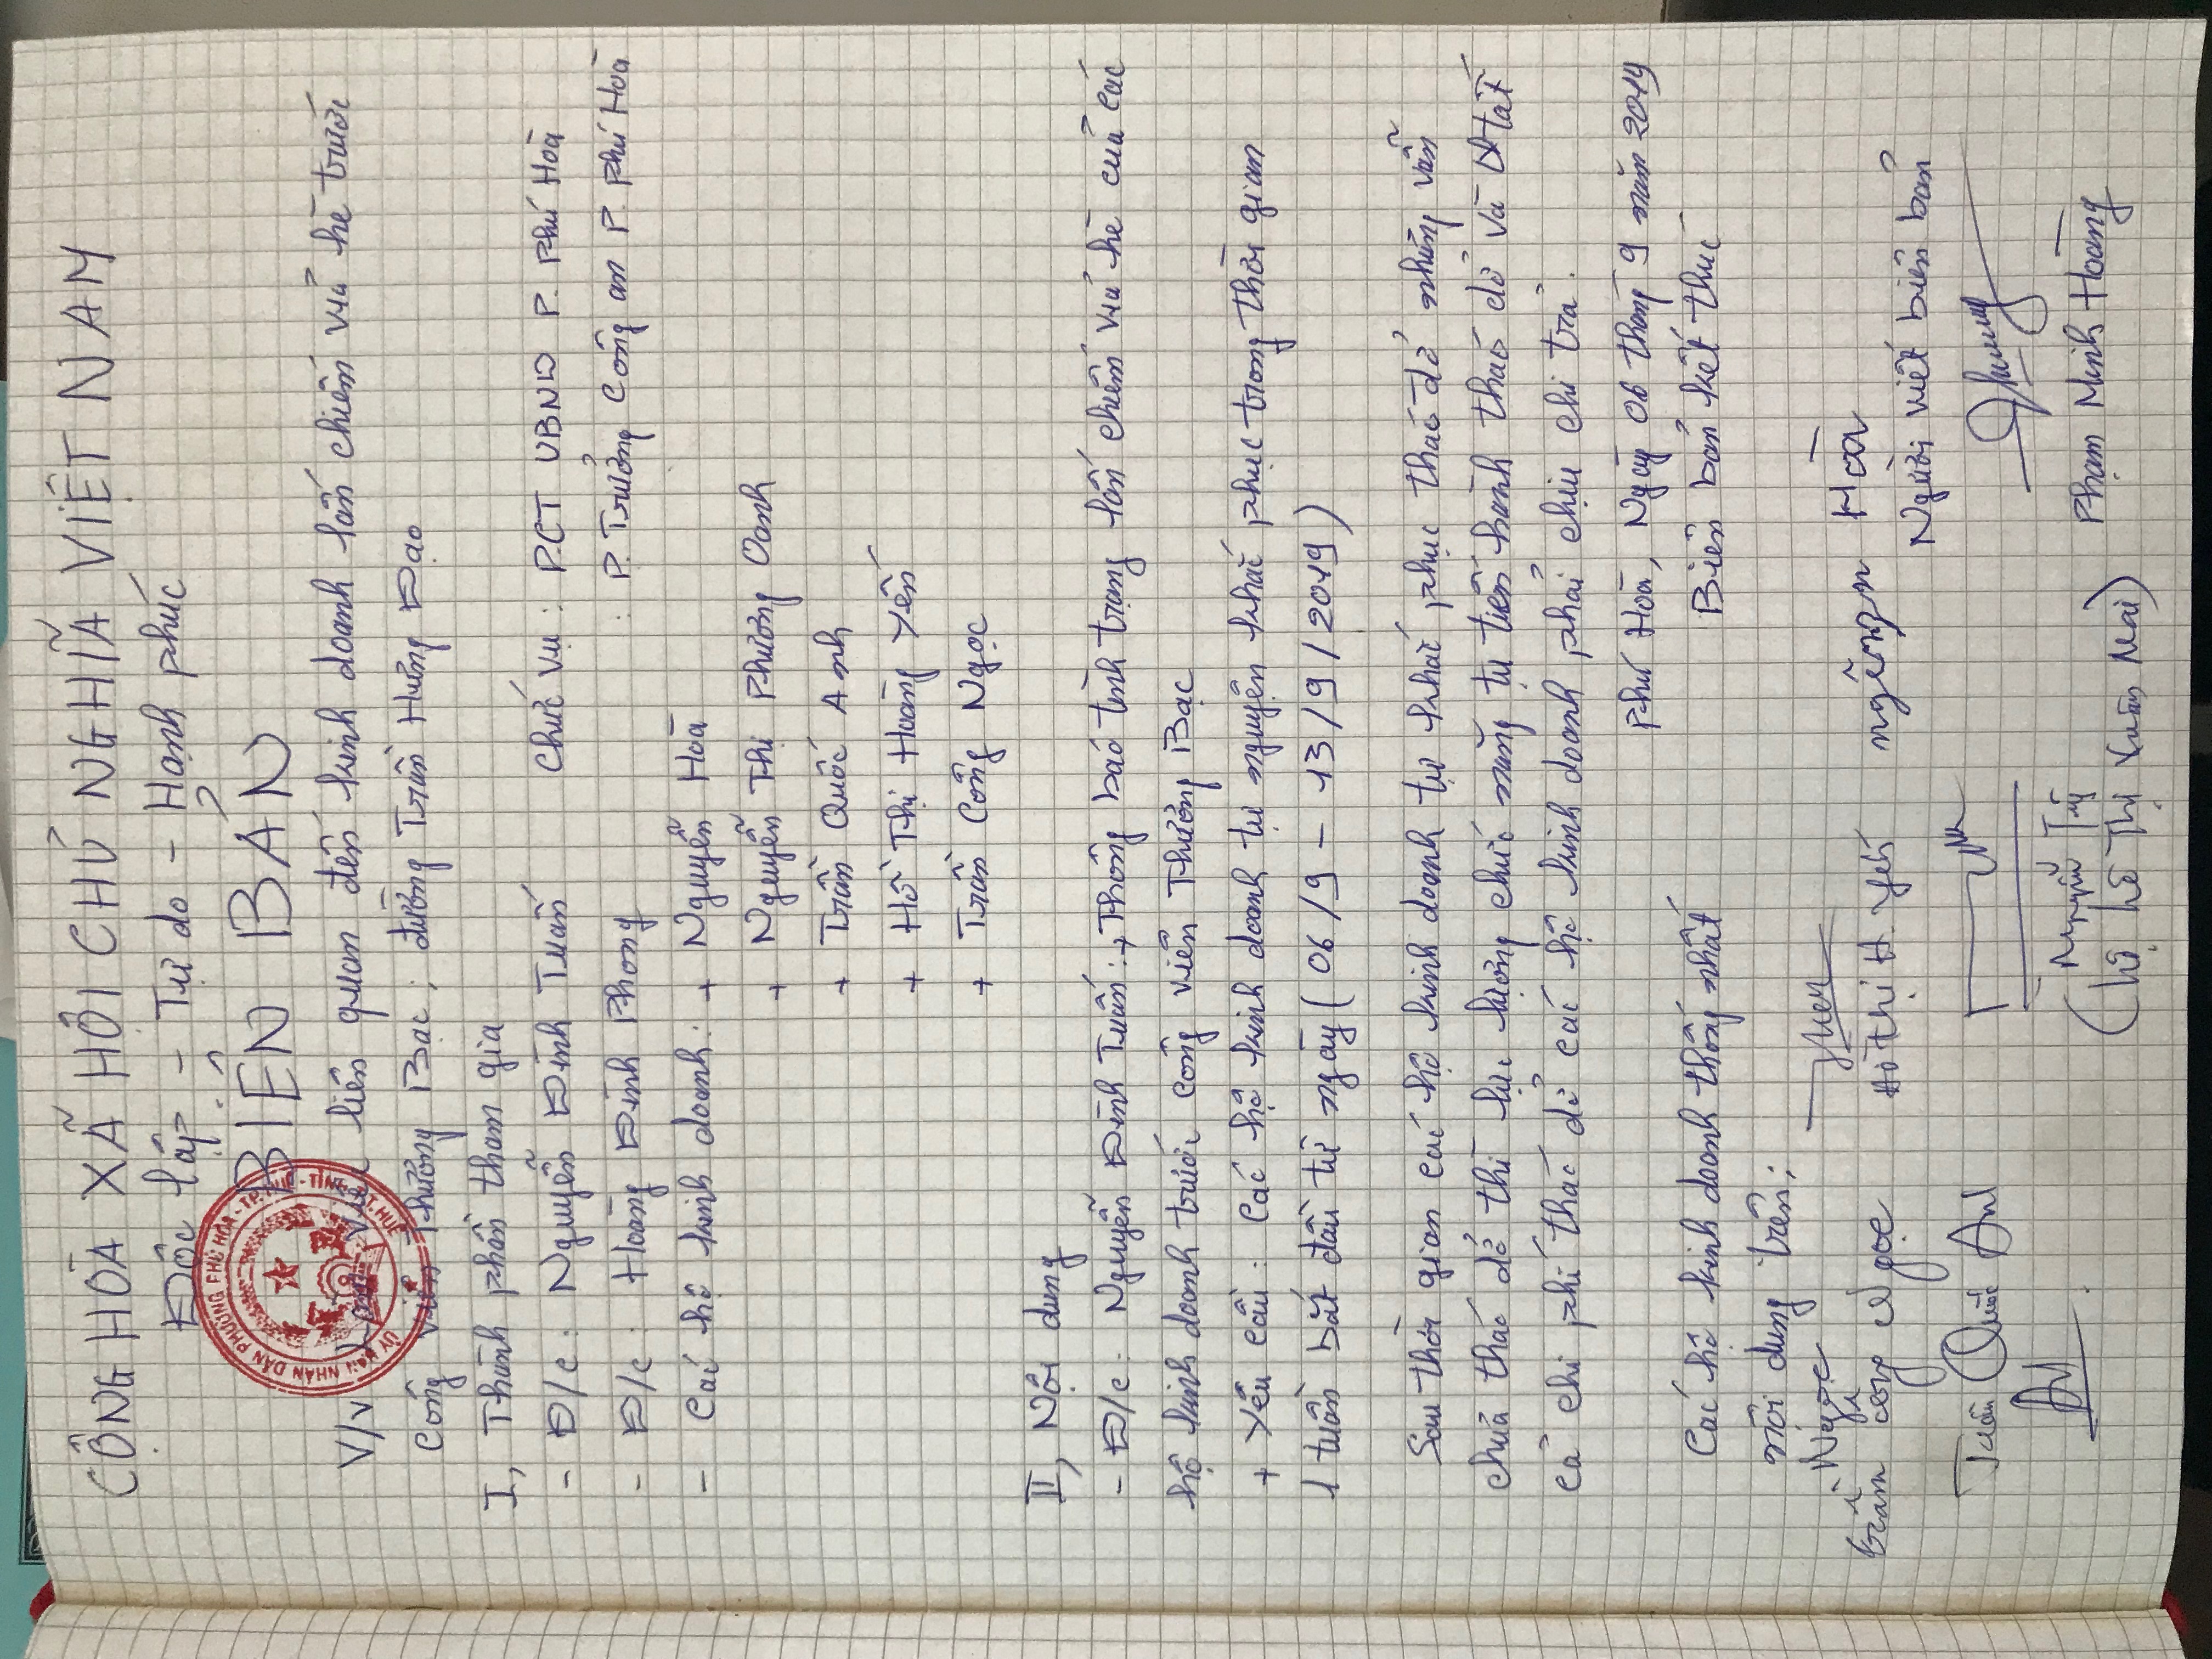 CỘNG HÒA XÃ HỘI CHỦ NGHĨA VIỆT NAM
Độc lập - Tự do - Hạnh phúc
BIÊN BẢN
V/v liên quan đến kinh doanh lấn chiếm vỉa hè trước
Công viên Thương Bạc; đường Trần Hưng Đạo
I, Thành phần tham gia
- Đ/c: Nguyễn Đình Tuấn Chức vụ: P.CT UBND P. Phú Hoà
- Đ/c: Hoàng Đình Phong : P. Trưởng Công an P. Phú Hoà
- Các hộ kinh doanh: + Nguyễn Hoà
+ Nguyễn Thị Phương Oanh
+ Trần Quốc Anh
+ Hồ Thị Hoàng Yến
+ Trần Công Ngọc
II, Nội dung
- Đ/c: Nguyễn Đình Tuấn: + Thông báo tình trạng lấn chiếm vỉa hè của các
hộ kinh doanh trước công viên Thương Bạc
+ Yêu cầu: Các hộ kinh doanh tự nguyện khắc phục trong thời gian
1 tuần bắt đầu từ ngày (06/9 - 13/9/2019)
Sau thời gian các hộ kinh doanh tự khắc phục tháo dở nhưng vẫn
chưa tháo dở thì lực lượng chức năng tự tiến hành tháo dở và tất
cả chi phí tháo dở các hộ kinh doanh phải chịu chi trả.
Phú Hoà, Ngày 06 tháng 9 năm 2019
Biên bản kết thúc
Các hộ kinh doanh thống nhất
nội dung trên:
Ngọc
Trần công Ngọc
Yến
Hồ Thị H. Yến
Hòa
Người viết biên bản
Trần Quốc Anh
Nguyễn Tuý
(hộ Lê Thị Xuân Mai)
Phạm Minh Hoàng
ỦY BAN NHÂN DÂN PHƯỜNG PHÚ HÒA - TP. HUẾ - TỈNH T.T.HUẾ